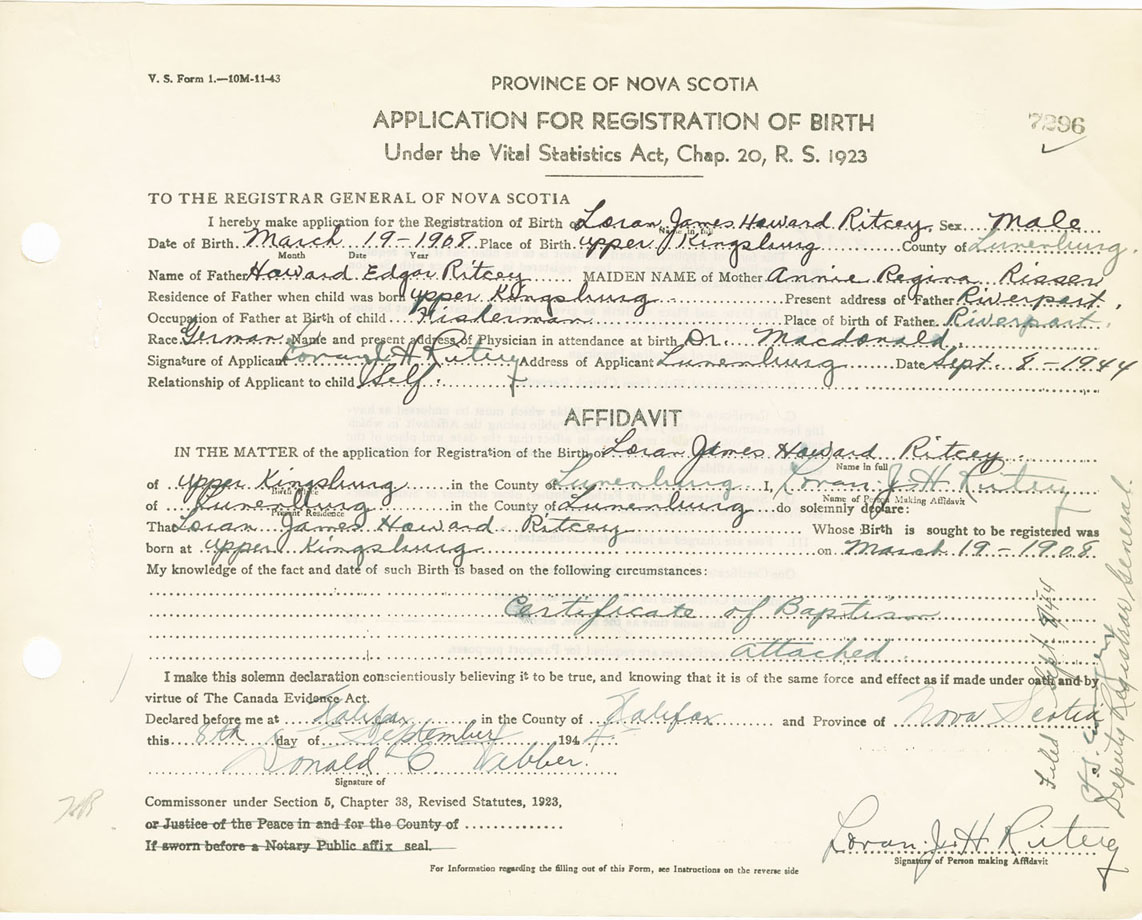 V. S. Form 1.—10M-11-43
PROVINCE OF NOVA SCOTIA
APPLICATION FOR REGISTRATION OF BIRTH
7296
Under the Vital Statistics Act, Chap. 20, R. S. 1923
TO THE REGISTRAR GENERAL OF NOVA SCOTIA
I hereby make application for the Registration of Birth of Loran James Howard Ritcey Sex Male
Name in full
Date of Birth March 19-1908 Place of Birth upper Kingsburg County of Lunenburg.
Month Date Year
Name of Father Howard Edgar Ritcey MAIDEN NAME of Mother Annie Regina Risser
Residence of Father when child was born upper Kingsburg Present address of Father Riverport.
Occupation of Father at Birth of child Fisherman Place of birth of Father Riverport.
Race German Name and present address of Physician in attendance at birth Dr. Macdonald
Signature of Applicant Loran J H Ritcey Address of Applicant Lunenburg Date Sept. 8-1944
Relationship of Applicant to child Self.
AFFIDAVIT
IN THE MATTER of the application for Registration of the Birth of Loran James Howard Ritcey
Name in full
of upper Kingsburg in the County of Lunenburg I, Loran J. H. Ritcey
Birth Place Name of Person Making Affidavit
of Lunenburg in the County of Lunenburg do solemnly declare:
Present Residence
That Loran James Howard Ritcey Whose Birth is sought to be registered was
born at upper Kingsburg on March 19-1908.
My knowledge of the fact and date of such Birth is based on the following circumstances:
Certificate of Baptism
attached.
I make this solemn declaration conscientiously believing it to be true, and knowing that it is of the same force and effect as if made under oath and by
virtue of The Canada Evidence Act.
Declared before me at Halifax in the County of Halifax and Province of Nova Scotia
this 8th day of September 1944.
Donald C. Webber.
Signature of
Commissioner under Section 5, Chapter 38, Revised Statutes, 1923,
or Justice of the Peace in and for the County of
If sworn before a Notary Public affix seal.
Loran J. H. Ritcey
Signature of Person making Affidavit
For Information regarding the filling out of this Form, see Instructions on the reverse side
Filed Sept. 9/44
Deputy Registrar General.